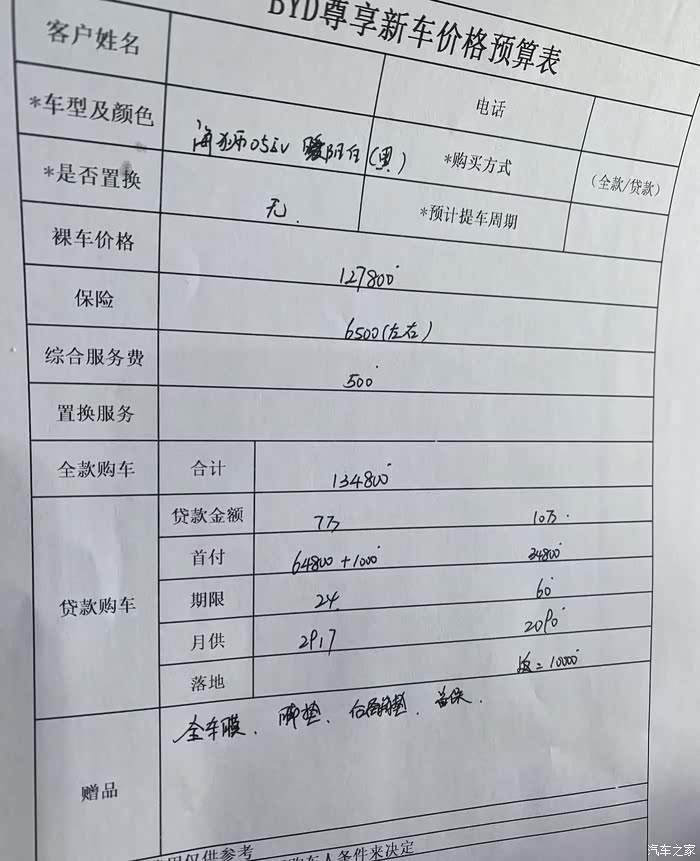 BYD尊享新车价格预算表
客户姓名 电话
*车型及颜色 海狮05EV 暖阳白(黑) *购买方式 (全款/贷款)
*是否置换 无. *预计提车周期
裸车价格 127800
保险 6500(左右)
综合服务费 500
置换服务
全款购车 合计 134800
贷款购车 贷款金额 7万 10万.
首付 64800+1000 34800
期限 24 60
月供 2917 2090
落地 返=10000
赠品 全车膜、脚垫、后备箱垫、首保.
仅供参考
人条件来决定
汽车之家